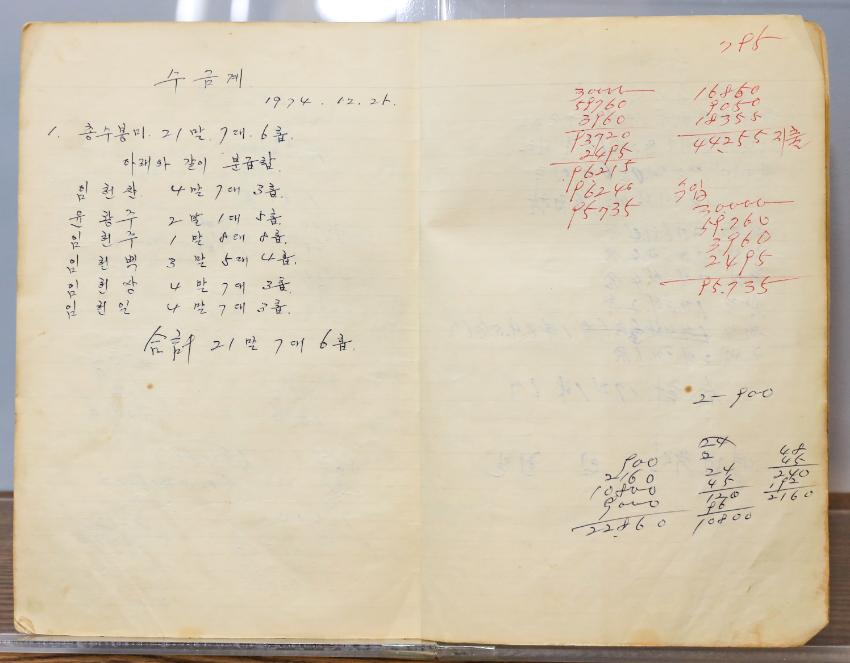 수금계
1974. 12. 25.
1. 총수봉미. 21말. 7대. 6홉.
아래와 같이 분급함.
임천완 4말 7대 3홉.
윤황주 2말 1대 5홉.
임헌주 1말 8대 8홉.
임헌백 3말 5대 4홉.
임헌상 4말 7대 3홉.
임헌일 4말 7대 3홉.
合計 21말 7대 6홉.
795
30000
59760
3960
93720
2495
96215
96240
95735
16850
9050
18355
44255 지출
수입
30000
59.760
3960
2495
95.735
2- 900
900
2160
10800
9000
22860
24
2
24
45
120
96
10800
48
45
240
192
2160